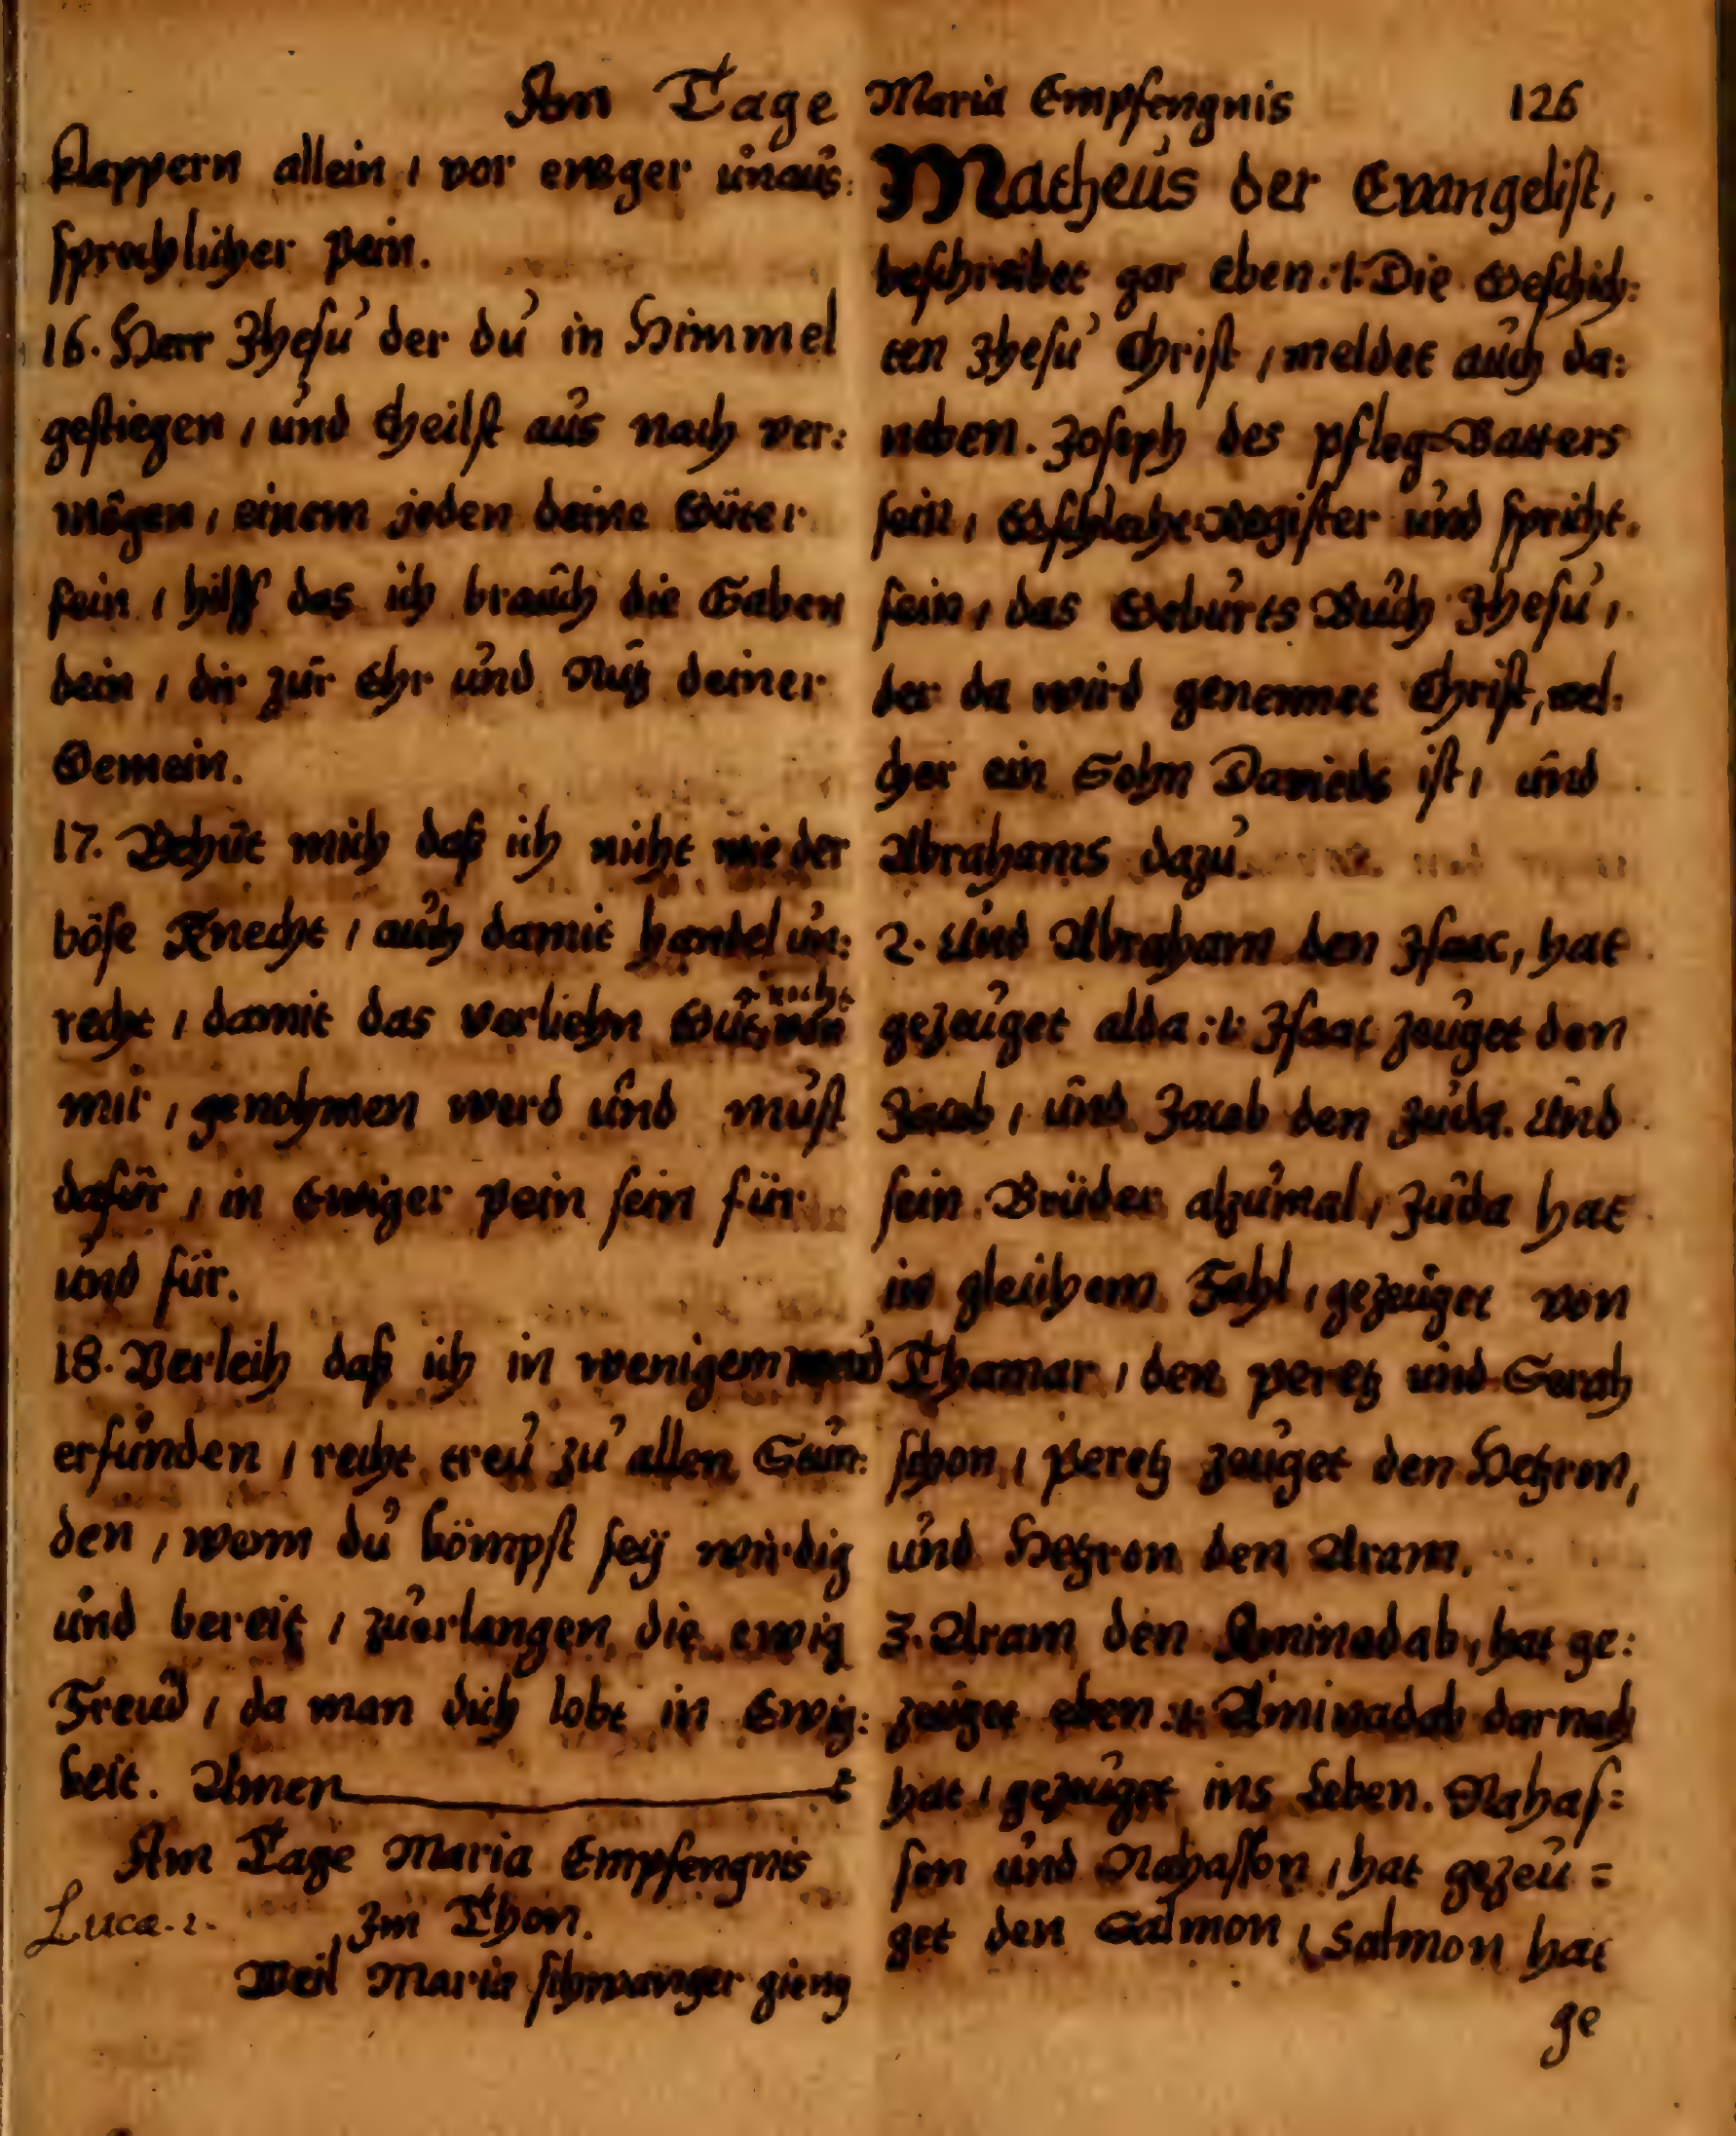 Am Tage Maria Empfengnis 126
klappern allein / vor ewger unaus:
sprechlicher pein.
16. Herr Jhesu der du in Himmel
gestiegen / und theilst aus nach ver:
mögen / einem jeden deine Güter
fein / hilff das ich brauch die Gaben
dein / dir zur Ehr und Nutz deiner
Gemein.
17. Behüt mich daß ich nicht wie der
böse Knecht / auch damit handel un:
recht / damit das verliehn Gut, nicht von
mir / genohmen werd und must
dafür / in Ewiger pein sein für
und für.
18. Verleih daß ich in wenigem werd
erfunden / recht treu zu allen Stun:
den / wenn du kömpst seÿ wirdig
und bereit / zuerlangen die ewig
Freud / da man dich lobt in Ewig:
keit. Amen
Am Tage Maria Empfengnis
Luca. 1. Im Thon.
Weil Maria schwanger gieng
Matheus der Evangelist,
beschreibet gar eben :/: Die Geschich:
ten Jhesu Christ / meldet auch da:
neben. Joseph des pfleg=Vatters
sein / Gschlecht=Register und spricht.
fein / das Geburts Buch Jhesu /
der da wird genennet Christ, wel:
cher ein Sohn Davieds ist / und
Abrahams dazu.
2. Und Abraham den Isaac, hat
gezeuget alda :/: Isaac zeuget den
Jacob / und Jacob den Juda. Und
sein Brüder alzumal / Juda hat
in gleichem Fahl / gezeuget von
Thamar / den peretz und Serah
schon / peretz zeuget den Hetzron,
und Hetzron den Aram.
3. Aram den Aminadab, hat ge:
zeuget eben :/: Aminadab darnach
hat / gezeuget ins Leben. Nahas=
son und Nahasson / hat gezeu=
get den Salmon / Salmon hat
ge